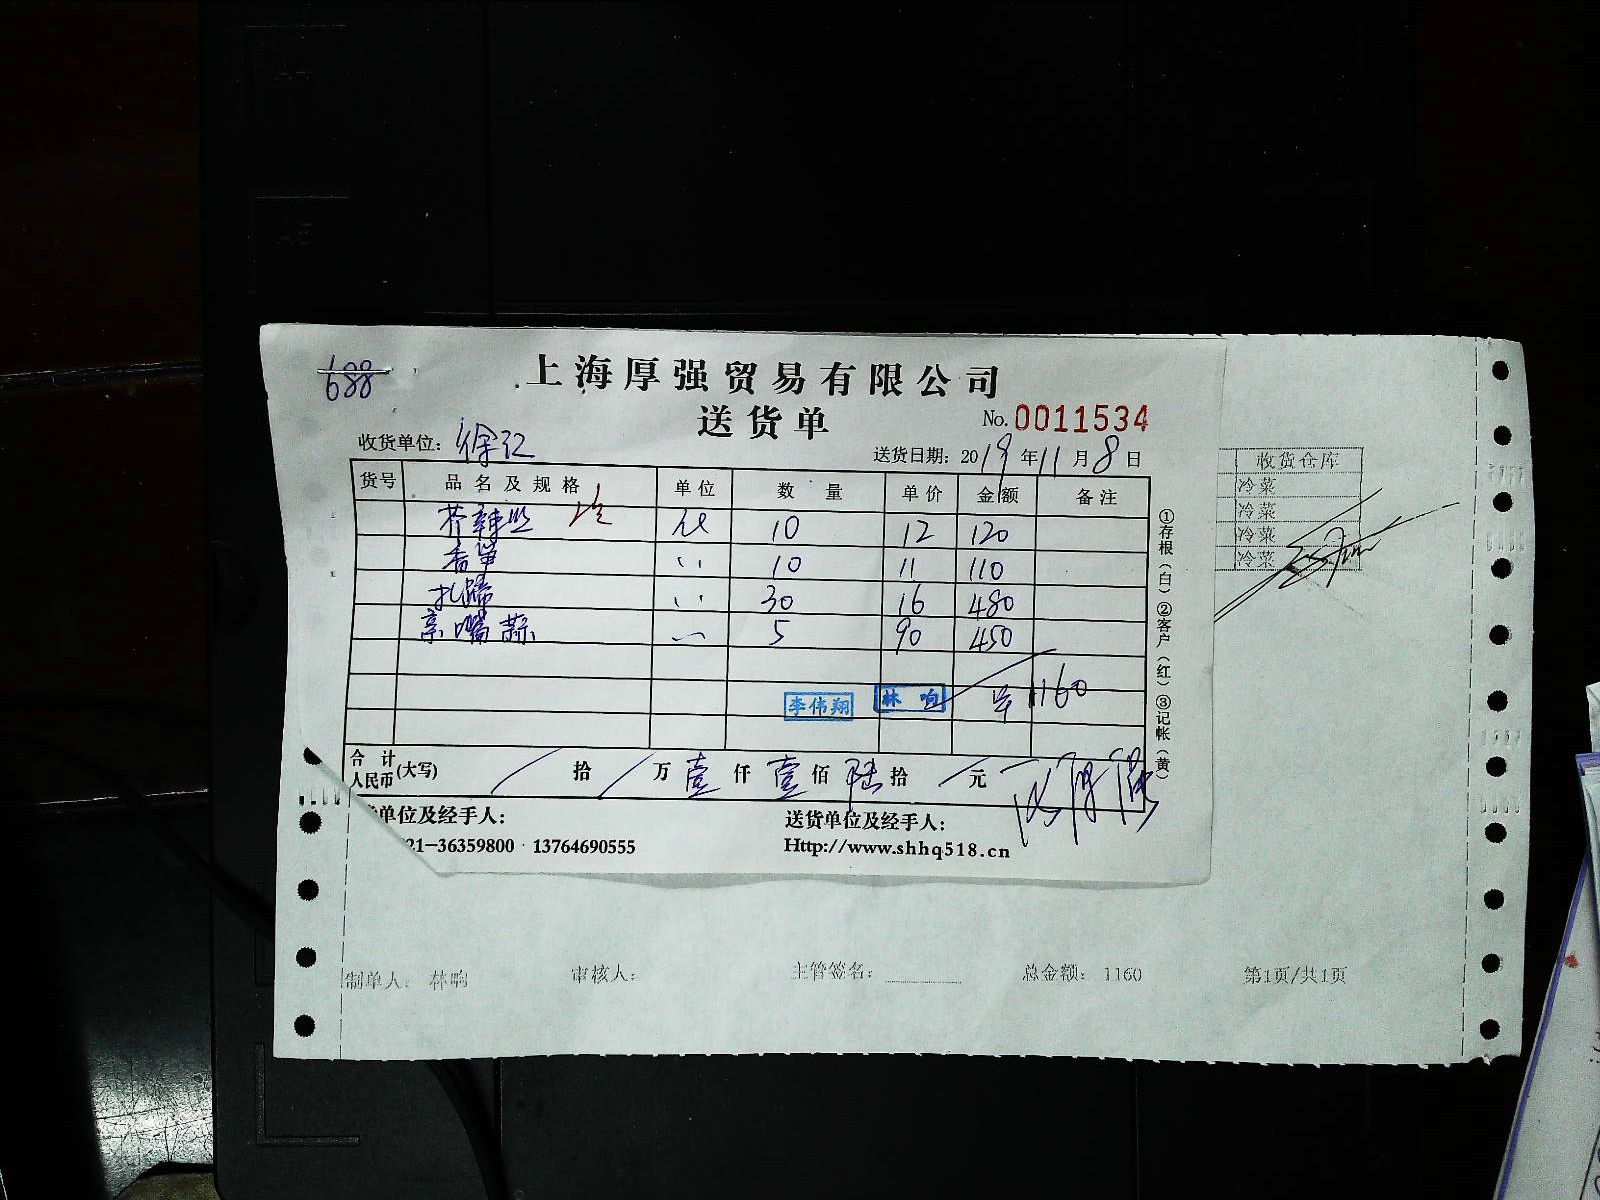 688
上海厚强贸易有限公司
送货单 No. 0011534
收货单位: 徐汇 送货日期: 2019年11月8日
货号 品名及规格 单位 数量 单价 金额 备注
芥辣丝 10 12 120
香笋 〃 10 11 110
扎蹄 〃 30 16 480
〃 5 90 450
李伟翔 林响 1160
合计人民币(大写) 拾 万 壹 仟 壹 佰 陆 拾 元
单位及经手人: 送货单位及经手人:
21-36359800 13764690555 Http://www.shhq518.cn
①存根(白)②客户(红)③记帐(黄)
收货仓库
冷菜
冷菜
冷菜
冷菜
制单人: 林响 审核人: 主管签名: 总金额: 1160 第1页/共1页